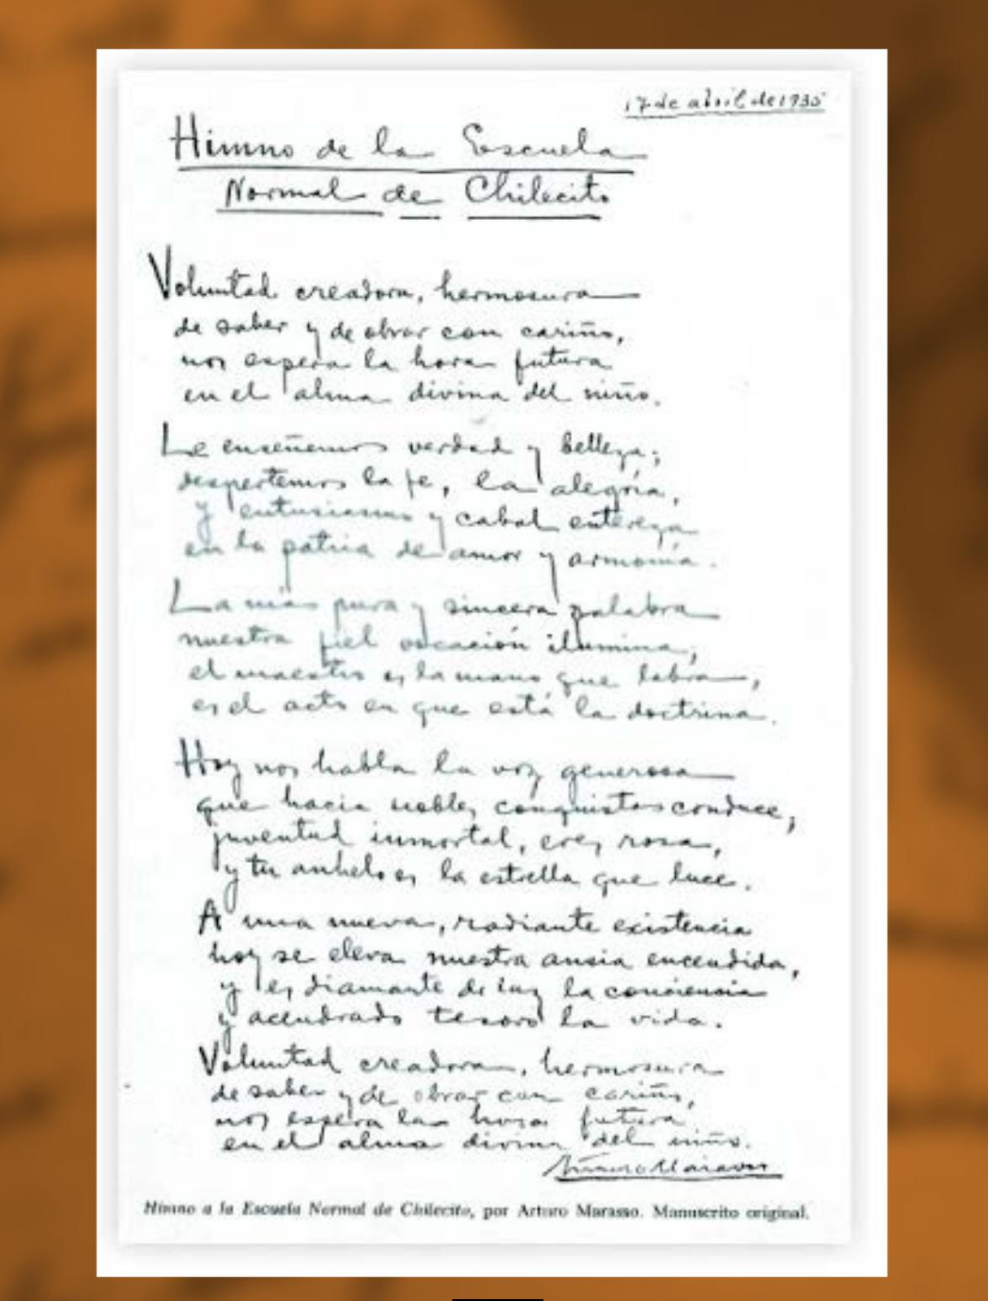 17 de abril de 1935
Himno de la Escuela
Normal de Chilecito
Voluntad creadora, hermosura
de saber y de obrar con cariño,
nos espera la hora futura
en el alma divina del niño.
Le enseñemos verdad y belleza;
despertemos la fe, la alegría,
y entusiasmo y cabal entereza
en la patria de amor y armonía.
La más pura y sincera palabra
nuestra fiel vocación ilumina;
el maestro es la mano que labra,
es el acto en que está la doctrina.
Hoy nos habla la voz generosa
que hacia nobles conquistas conduce;
juventud inmortal, eres rosa,
y tu anhelo es la estrella que luce.
A una nueva, radiante existencia
hoy se eleva nuestra ansia encendida,
y es diamante de luz la conciencia
y acendrado tesoro la vida.
Voluntad creadora, hermosura
de saber y de obrar con cariño,
nos espera la hora futura
en el alma divina del niño.
Arturo Marasso
Himno a la Escuela Normal de Chilecito, por Arturo Marasso. Manuscrito original.